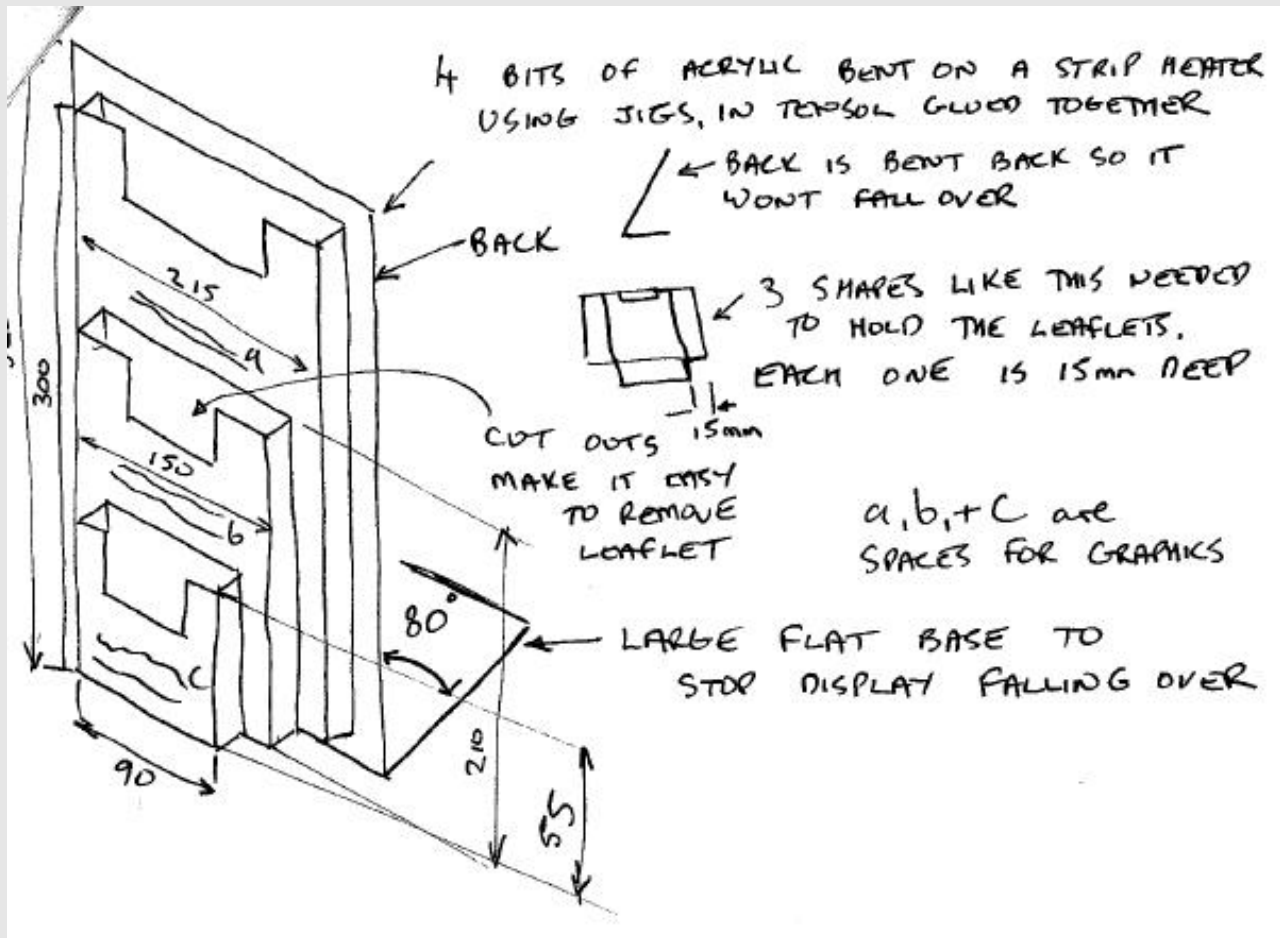 4 BITS OF ACRYLIC BENT ON A STRIP HEATER
USING JIGS, IN TENSOL GLUED TOGETHER
BACK IS BENT BACK SO IT
WONT FALL OVER
BACK
3 SHAPES LIKE THIS NEEDED
TO HOLD THE LEAFLETS.
EACH ONE IS 15mm DEEP
15mm
215
a
300
CUT OUTS
MAKE IT EASY
TO REMOVE
LEAFLET
150
b
a, b, + C are
SPACES FOR GRAPHICS
80°
LARGE FLAT BASE TO
STOP DISPLAY FALLING OVER
C
90
210
55